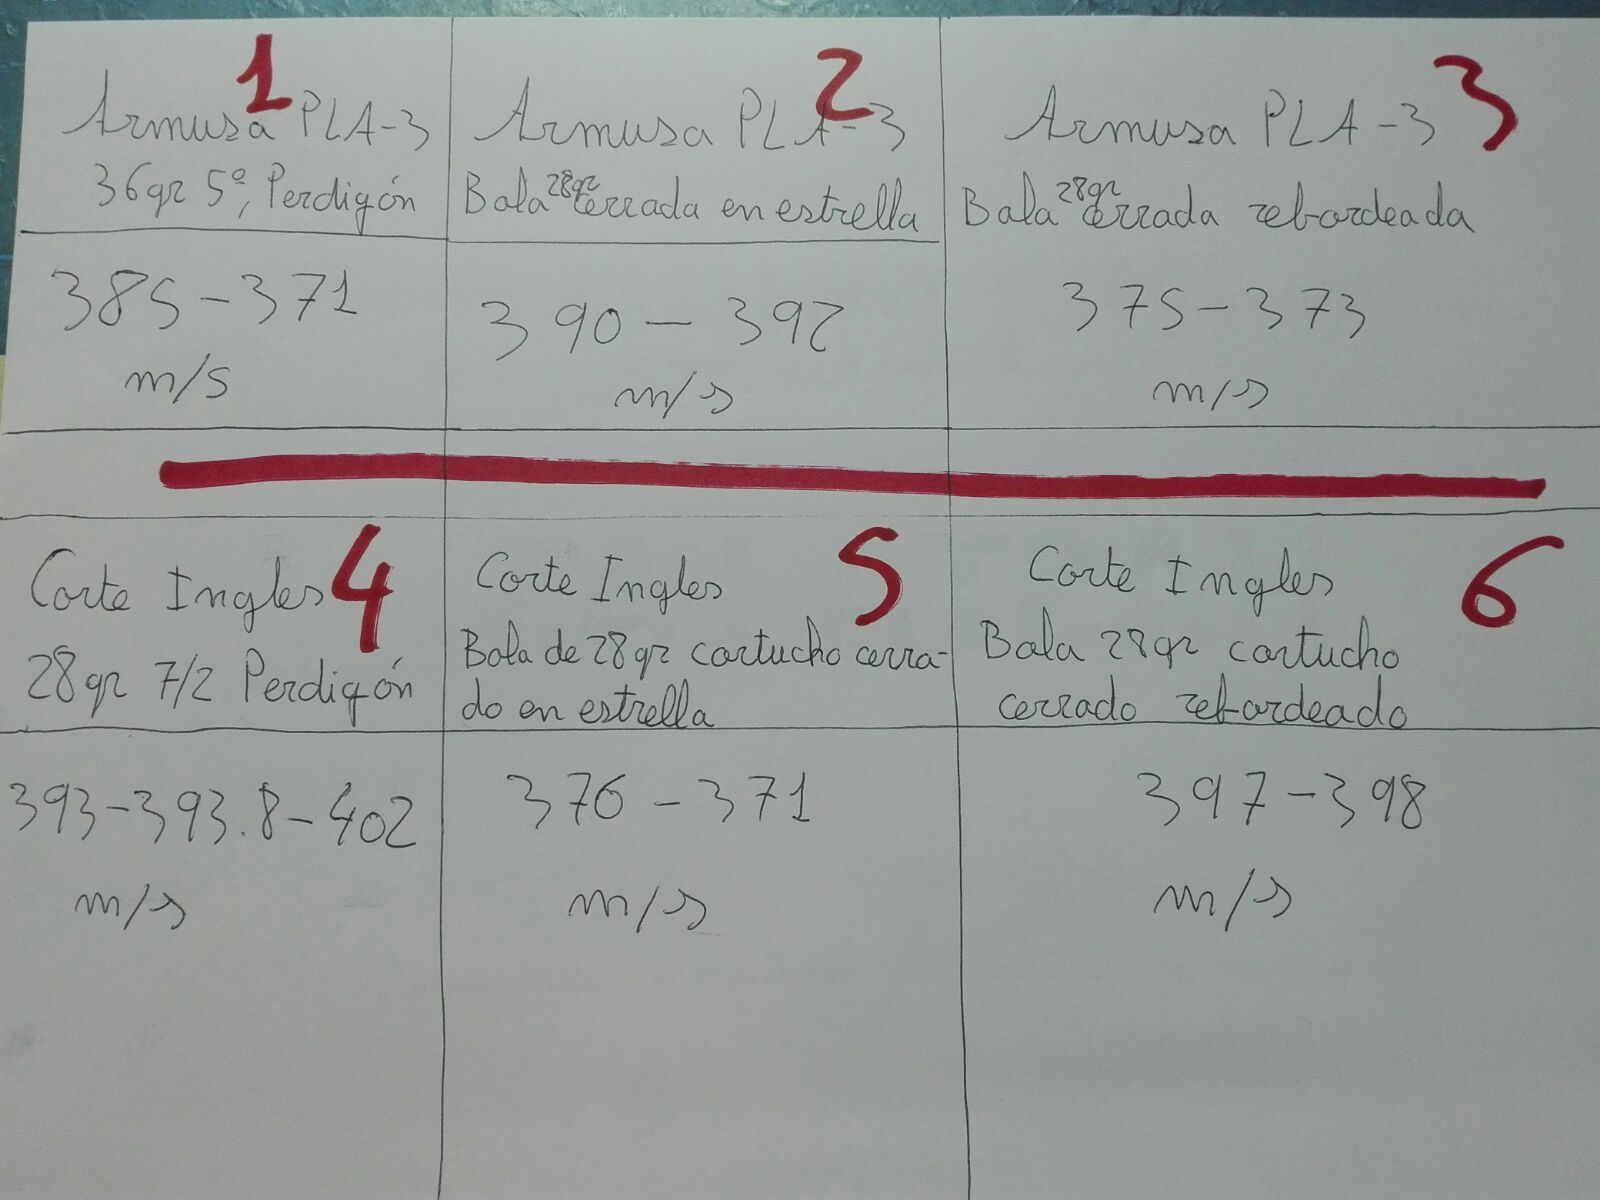 1
Armusa PLA-3
36gr 5º, Perdigón
385-371
m/s
2
Armusa PLA-3
Bala 28gr cerrada en estrella
390-392
m/s
3
Armusa PLA-3
Bala 28gr cerrada rebordeada
375-373
m/s
4
Corte Ingles
28gr 7/2 Perdigón
393-393.8-402
m/s
5
Corte Ingles
Bala de 28gr cartucho cerra-
do en estrella
376-371
m/s
6
Corte Ingles
Bala 28gr cartucho
cerrado rebordeado
397-398
m/s